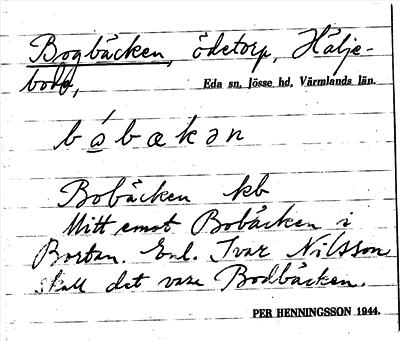 Bogbäcken, ödetorp, Hälje-
boda,
Eda sn, Jösse hd, Värmlands län.
bǻbækən
Bobäcken kb
Mitt emot Bobäcken i
Bortan. Enl. Ivar Nilsson
skall det vara Bodbäcken.
PER HENNINGSSON 1944.